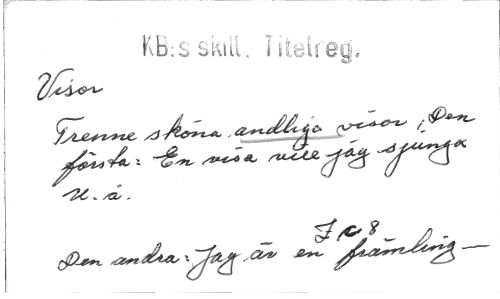 KB:s skill. Titelreg.
Visor
Trenne sköna andliga visor, Den
första: En visa vill jag sjunga
U. å.
F c 8
Den andra: Jag är en främling—